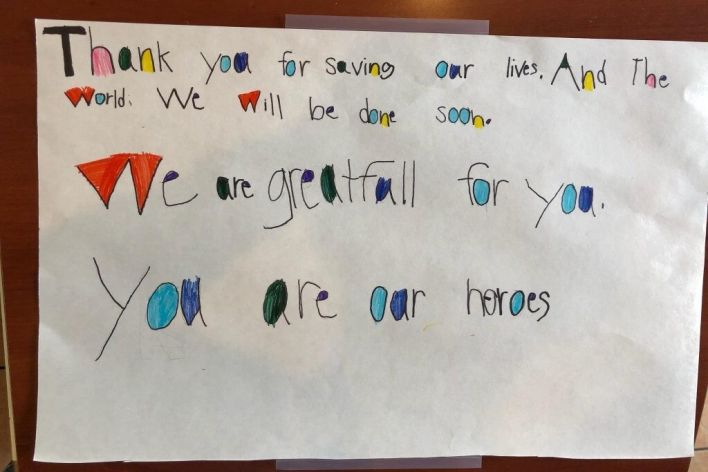 Thank you for saving our lives. And The
World. We Will be done soon.
We are greatfull for you.
you are our heroes